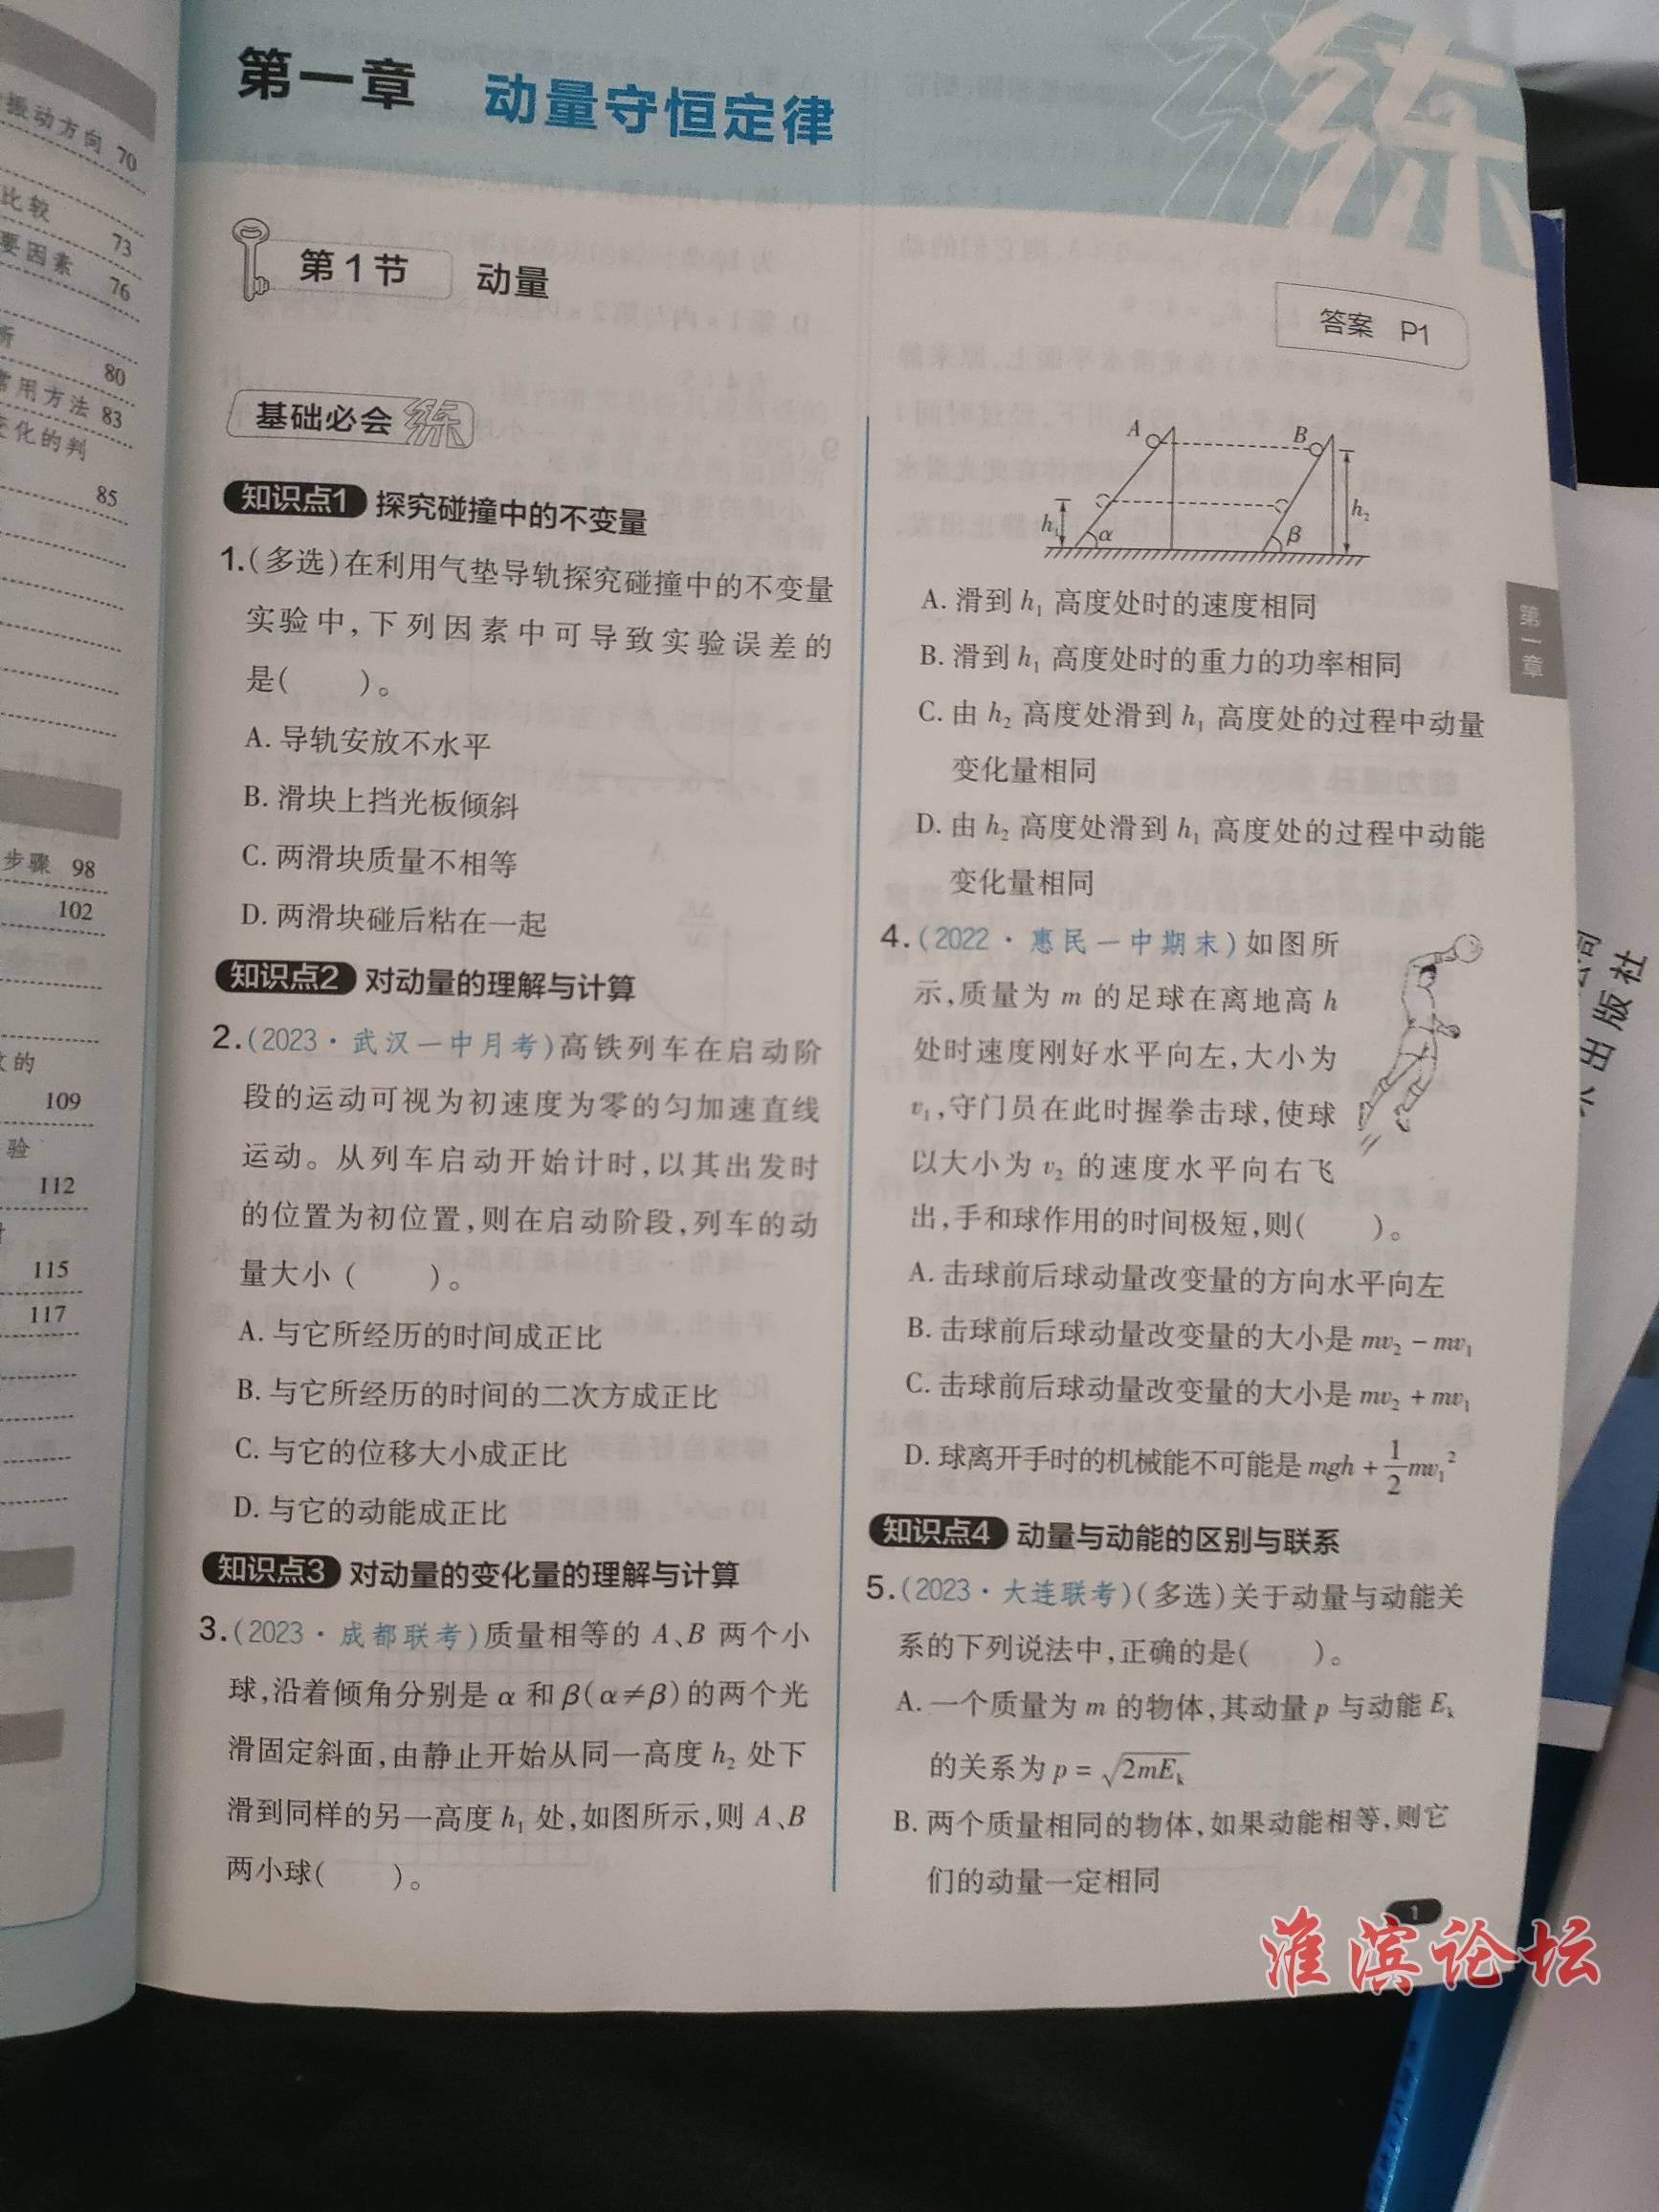 振动方向 70
比较
73
要因素
76
80
常用方法 83
变化的判
85
步骤 98
102
数的
109
验
112
115
117
第一章 动量守恒定律
练
第1节 动量
答案 P1
基础必会练
知识点1 探究碰撞中的不变量
1.(多选)在利用气垫导轨探究碰撞中的不变量
实验中,下列因素中可导致实验误差的
是(  )。
A. 导轨安放不水平
B. 滑块上挡光板倾斜
C. 两滑块质量不相等
D. 两滑块碰后粘在一起
知识点2 对动量的理解与计算
2.(2023·武汉一中月考)高铁列车在启动阶
段的运动可视为初速度为零的匀加速直线
运动。从列车启动开始计时,以其出发时
的位置为初位置,则在启动阶段,列车的动
量大小(  )。
A. 与它所经历的时间成正比
B. 与它所经历的时间的二次方成正比
C. 与它的位移大小成正比
D. 与它的动能成正比
知识点3 对动量的变化量的理解与计算
3.(2023·成都联考)质量相等的 A、B 两个小
球,沿着倾角分别是 α 和 β(α≠β)的两个光
滑固定斜面,由静止开始从同一高度 h₂ 处下
滑到同样的另一高度 h₁ 处,如图所示,则 A、B
两小球(  )。
A B
h₁ α β h₂
A. 滑到 h₁ 高度处时的速度相同
B. 滑到 h₁ 高度处时的重力的功率相同
C. 由 h₂ 高度处滑到 h₁ 高度处的过程中动量
变化量相同
D. 由 h₂ 高度处滑到 h₁ 高度处的过程中动能
变化量相同
4.(2022·惠民一中期末)如图所
示,质量为 m 的足球在离地高 h
处时速度刚好水平向左,大小为
v₁,守门员在此时握拳击球,使球
以大小为 v₂ 的速度水平向右飞
出,手和球作用的时间极短,则(  )。
A. 击球前后球动量改变量的方向水平向左
B. 击球前后球动量改变量的大小是 mv₂ − mv₁
C. 击球前后球动量改变量的大小是 mv₂ + mv₁
D. 球离开手时的机械能不可能是 mgh + 1/2 mv₁²
知识点4 动量与动能的区别与联系
5.(2023·大连联考)(多选)关于动量与动能关
系的下列说法中,正确的是(  )。
A. 一个质量为 m 的物体,其动量 p 与动能 Eₖ
的关系为 p = √2mEₖ
B. 两个质量相同的物体,如果动能相等,则它
们的动量一定相同
第一章
1
出版社
淮滨论坛